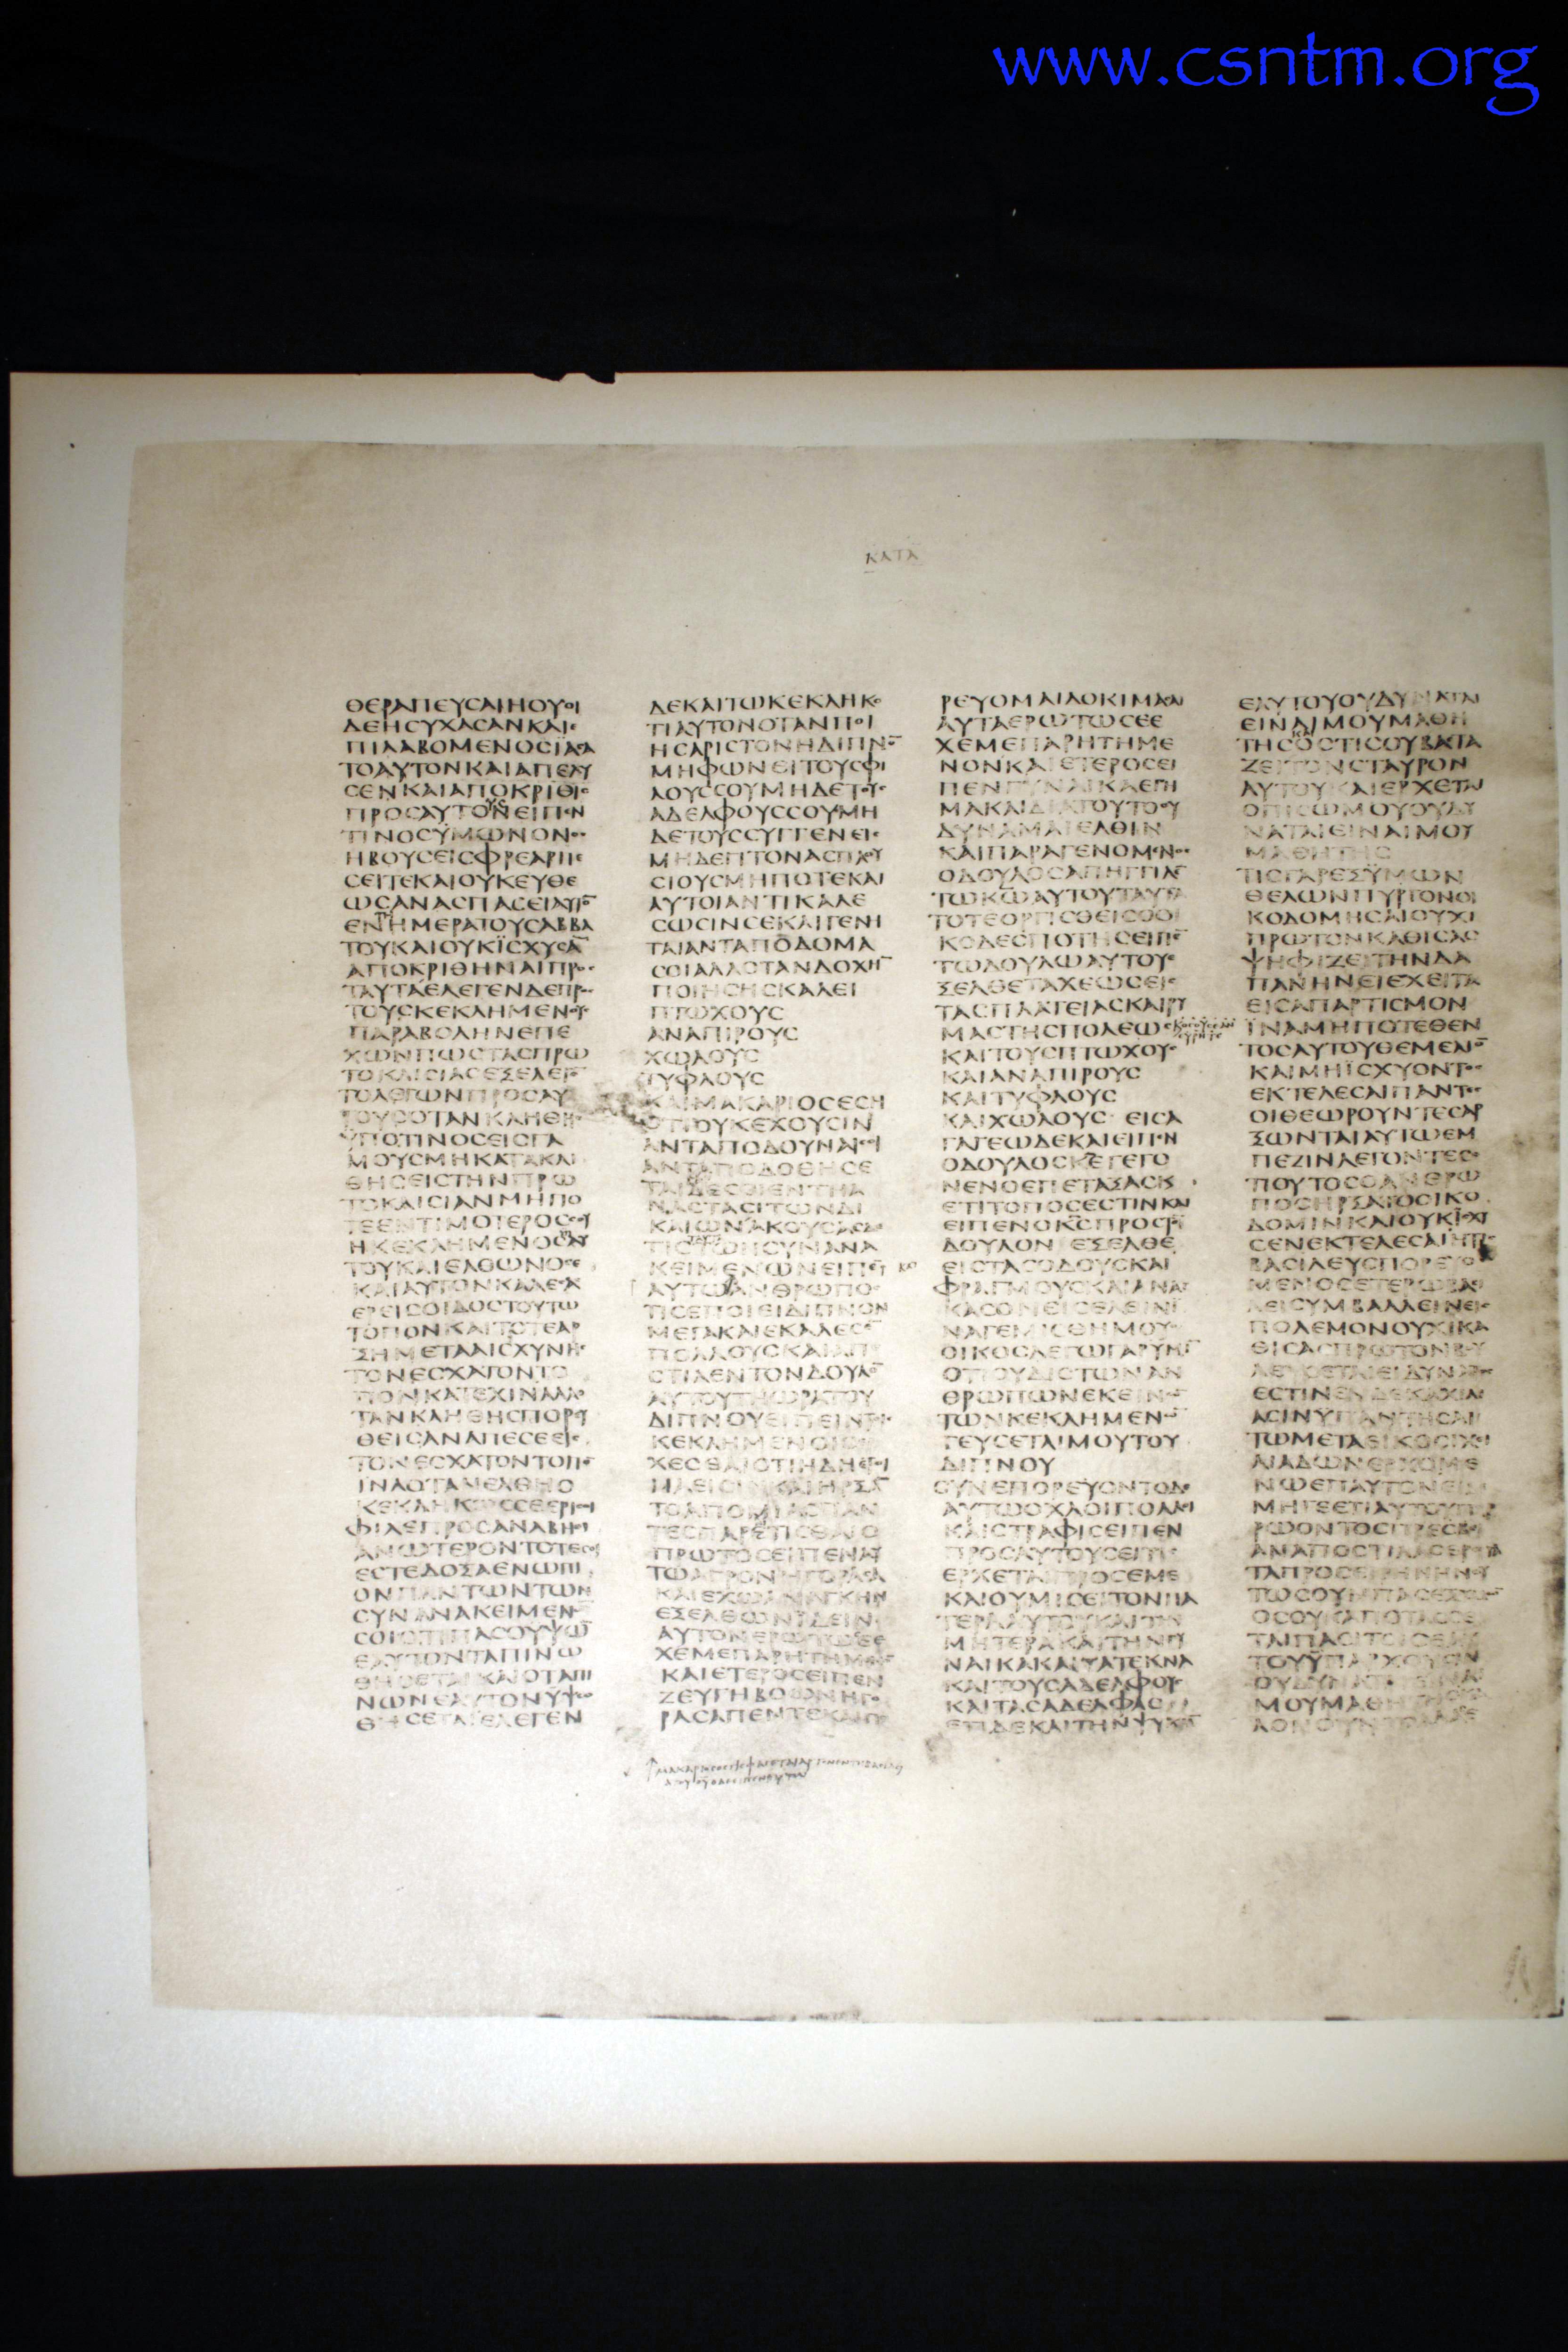 www.csntm.org
ΚΑΤΑ
ΘΕΡΑΠΕΥϹΑΙΗΟΥΟΙ
ΔΕΗϹΥΧΑϹΑΝΚΑΙΕ
ΠΙΛΑΒΟΜΕΝΟϹΪΑϹΑ
ΤΟΑΥΤΟΝΚΑΙΑΠΕΛΥ
ϹΕΝΚΑΙΑΠΟΚΡΙΘΙϹ
ΠΡΟϹΑΥΤΟΝΕΙΠΕΝ
ΤΙΝΟϹΥΜΩΝΟΝΟϹ
ΗΒΟΥϹΕΙϹΦΡΕΑΡΠΕ
ϹΕΙΤΕΚΑΙΟΥΚΕΥΘΕ
ΩϹΑΝΑϹΠΑϹΕΙΑΥΤΟ̅
ΕΝΗΜΕΡΑΤΟΥϹΑΒΒΑ
ΤΟΥΚΑΙΟΥΚΪϹΧΥϹΑ̅
ΑΠΟΚΡΙΘΗΝΑΙΠΡΟϹ
ΤΑΥΤΑΕΛΕΓΕΝΔΕΠΡΟϹ
ΤΟΥϹΚΕΚΛΗΜΕΝΟΥϹ
ΠΑΡΑΒΟΛΗΝΕΠΕ
ΧΩΝΠΩϹΤΑϹΠΡΩ
ΤΟΚΛΙϹΙΑϹΕΞΕΛΕΓΟ̅
ΤΟΛΕΓΩΝΠΡΟϹΑΥ
ΤΟΥϹΟΤΑΝΚΛΗΘΗϹ
ΫΠΟΤΙΝΟϹΕΙϹΓΑ
ΜΟΥϹΜΗΚΑΤΑΚΛΙ
ΘΗϹΕΙϹΤΗΝΠΡΩ
ΤΟΚΛΙϹΙΑΝΜΗΠΟ
ΤΕΕΝΤΙΜΟΤΕΡΟϹϹΟΥ
ΗΚΕΚΛΗΜΕΝΟϹΑΥ
ΤΟΥΚΑΙΕΛΘΩΝΟϹΕ
ΚΑΙΑΥΤΟΝΚΑΛΕϹΑϹ
ΕΡΕΙϹΟΙΔΟϹΤΟΥΤΩ
ΤΟΠΟΝΚΑΙΤΟΤΕΑΡ
ΞΗΜΕΤΑΑΙϹΧΥΝΗϹ
ΤΟΝΕϹΧΑΤΟΝΤΟ
ΠΟΝΚΑΤΕΧΙΝΑΛΛΟ
ΤΑΝΚΛΗΘΗϹΠΟΡΕΥ
ΘΕΙϹΑΝΑΠΕϹΕΕΙϹ
ΤΟΝΕϹΧΑΤΟΝΤΟΠΟ̅
ΙΝΑΟΤΑΝΕΛΘΗΟ
ΚΕΚΛΗΚΩϹϹΕΕΡΙϹΟΙ
ΦΙΛΕΠΡΟϹΑΝΑΒΗΘΙ
ΑΝΩΤΕΡΟΝΤΟΤΕϹΟΙ
ΕϹΤΕΔΟΞΑΕΝΩΠΙ
ΟΝΠΑΝΤΩΝΤΩΝ
ϹΥΝΑΝΑΚΕΙΜΕΝΩ̅
ϹΟΙΟΤΙΠΑϹΟΥΨΩ̅
ΕΑΥΤΟΝΤΑΠΙΝΩ
ΘΗϹΕΤΑΙΚΑΙΟΤΑΠΙ
ΝΩΝΕΑΥΤΟΝΥΨΩ
ΘΗϹΕΤΑΙΕΛΕΓΕΝ
ΔΕΚΑΙΤΩΚΕΚΛΗΚΟ
ΤΙΑΥΤΟΝΟΤΑΝΠΟΙ
ΗϹΑΡΙϹΤΟΝΗΔΙΠΝΟ̅
ΜΗΦΩΝΕΙΤΟΥϹΦΙ
ΛΟΥϹϹΟΥΜΗΔΕΤΟΥϹ
ΑΔΕΛΦΟΥϹϹΟΥΜΗ
ΔΕΤΟΥϹϹΥΓΓΕΝΕΙϹ
ΜΗΔΕΓΙΤΟΝΑϹΠΛΟΥ
ϹΙΟΥϹΜΗΠΟΤΕΚΑΙ
ΑΥΤΟΙΑΝΤΙΚΑΛΕ
ϹΩϹΙΝϹΕΚΑΙΓΕΝΗ
ΤΑΙΑΝΤΑΠΟΔΟΜΑ
ϹΟΙΑΛΛΟΤΑΝΔΟΧΗ̅
ΠΟΙΗϹΗϹΚΑΛΕΙ
ΠΤΩΧΟΥϹ
ΑΝΑΠΙΡΟΥϹ
ΧΩΛΟΥϹ
ΤΥΦΛΟΥϹ
ΚΑΙΜΑΚΑΡΙΟϹΕϹΗ
ΟΤΙΟΥΚΕΧΟΥϹΙΝ
ΑΝΤΑΠΟΔΟΥΝΑΙϹΟΙ
ΑΝΤΑΠΟΔΟΘΗϹΕ
ΤΑΙΔΕϹΟΙΕΝΤΗΑ
ΝΑϹΤΑϹΙΤΩΝΔΙ
ΚΑΙΩΝΑΚΟΥϹΑϹΔΕ
ΤΙϹΤΩΝϹΥΝΑΝΑ
ΚΕΙΜΕΝΩΝΕΙΠΕ̅
ΑΥΤΩΑΝΘΡΩΠΟϹ
ΤΙϹΕΠΟΙΕΙΔΙΠΝΟΝ
ΜΕΓΑΚΑΙΕΚΑΛΕϹΕ̅
ΠΟΛΛΟΥϹΚΑΙΑΠΕ
ϹΤΙΛΕΝΤΟΝΔΟΥΛΟ̅
ΑΥΤΟΥΤΗΩΡΑΤΟΥ
ΔΙΠΝΟΥΕΙΠΕΙΝΤΟΙϹ
ΚΕΚΛΗΜΕΝΟΙϹ
ΧΕϹΘΑΙΟΤΙΗΔΗΕΤΟΙ
ΤΟΑΠΟΜΙΑϹΠΑΝ
ΤΕϹΠΑΡΕΤΙϹΘΑΙΟ
ΠΡΩΤΟϹΕΙΠΕΝΑΥ
ΤΩΑΓΡΟΝΗΓΟΡΑϹΑ
ΚΑΙΕΧΩΑΝΑΓΚΗΝ
ΕΞΕΛΘΩΝΙΔΕΙΝ
ΑΥΤΟΝΕΡΩΤΩϹΕΕ
ΧΕΜΕΠΑΡΗΤΗΜΕΝΟ̅
ΚΑΙΕΤΕΡΟϹΕΙΠΕΝ
ΖΕΥΓΗΒΟΩΝΗΓΟ
ΡΑϹΑΠΕΝΤΕΚΑΙΠΟ
ΡΕΥΟΜΑΙΔΟΚΙΜΑϹΑΙ
ΑΥΤΑΕΡΩΤΩϹΕΕ
ΧΕΜΕΠΑΡΗΤΗΜΕ
ΝΟΝΚΑΙΕΤΕΡΟϹΕΙ
ΠΕΝΓΥΝΑΙΚΑΕΓΗ
ΜΑΚΑΙΔΙΑΤΟΥΤΟΟΥ
ΔΥΝΑΜΑΙΕΛΘΙΝ
ΚΑΙΠΑΡΑΓΕΝΟΜΕΝΟϹ
ΟΔΟΥΛΟϹΑΠΗΓΓΙΛΕ̅
ΤΩΚΩ̅ΑΥΤΟΥΤΑΥΤΑ
ΤΟΤΕΟΡΓΙϹΘΕΙϹΟΟΙ
ΚΟΔΕϹΠΟΤΗϹΕΙΠΕ̅
ΤΩΔΟΥΛΩΑΥΤΟΥΕ
ΞΕΛΘΕΤΑΧΕΩϹΕΙϹ
ΤΑϹΠΛΑΤΕΙΑϹΚΑΙΡΥ
ΜΑϹΤΗϹΠΟΛΕΩϹ
ΚΑΙΤΟΥϹΠΤΩΧΟΥϹ
ΚΑΙΑΝΑΠΙΡΟΥϹ
ΚΑΙΤΥΦΛΟΥϹ
ΚΑΙΧΩΛΟΥϹ ΕΙϹΑ
ΓΑΓΕΩΔΕΚΑΙΕΙΠΕΝ
ΟΔΟΥΛΟϹΚ̅Ε̅ΓΕΓΟ
ΝΕΝΟΕΠΕΤΑΞΑϹΚΑΙ
ΕΤΙΤΟΠΟϹΕϹΤΙΝΚΑΙ
ΕΙΠΕΝΟΚ̅Ϲ̅ΠΡΟϹΤΟ̅
ΔΟΥΛΟΝ ΕΞΕΛΘΕ
ΕΙϹΤΑϹΟΔΟΥϹΚΑΙ
ΦΡΑΓΜΟΥϹΚΑΙΑΝΑΓ
ΚΑϹΟΝΕΙϹΕΛΘΕΙΝΪ
ΝΑΓΕΜΙϹΘΗΜΟΥΟ
ΟΙΚΟϹΛΕΓΩΓΑΡΥΜΙ̅
ΟΤΙΟΥΔΙϹΤΩΝΑΝ
ΘΡΩΠΩΝΕΚΕΙΝΩ̅
ΤΩΝΚΕΚΛΗΜΕΝΩ̅
ΓΕΥϹΕΤΑΙΜΟΥΤΟΥ
ΔΙΠΝΟΥ
ϹΥΝΕΠΟΡΕΥΟΝΤΟΔΕ
ΑΥΤΩΟΧΛΟΙΠΟΛΛΟΙ
ΚΑΙϹΤΡΑΦΙϹΕΙΠΕΝ
ΠΡΟϹΑΥΤΟΥϹΕΙΤΙϹ
ΕΡΧΕΤΑΙΠΡΟϹΕΜΕ
ΚΑΙΟΥΜΙϹΕΙΤΟΝΠΑ
ΤΕΡΑΑΥΤΟΥΚΑΙΤΗΝ
ΜΗΤΕΡΑΚΑΙΤΗΝΓΥ
ΝΑΙΚΑΚΑΙΤΑΤΕΚΝΑ
ΚΑΙΤΟΥϹΑΔΕΛΦΟΥϹ
ΚΑΙΤΑϹΑΔΕΛΦΑϹ
ΕΤΙΔΕΚΑΙΤΗΝΨΥΧΗ̅
ΕΑΥΤΟΥΟΥΔΥΝΑΤΑΙ
ΕΙΝΑΙΜΟΥΜΑΘΗ
ΤΗϹΟϹΤΙϹΟΥΒΑϹΤΑ
ΖΕΙΤΟΝϹΤΑΥΡΟΝ
ΑΥΤΟΥΚΑΙΕΡΧΕΤΑΙ
ΟΠΙϹΩΜΟΥΟΥΔΥ
ΝΑΤΑΙΕΙΝΑΙΜΟΥ
ΜΑΘΗΤΗϹ
ΤΙϹΓΑΡΕΞΥΜΩΝ
ΘΕΛΩΝΠΥΡΓΟΝΟΙ
ΚΟΔΟΜΗϹΑΙΟΥΧΙ
ΠΡΩΤΟΝΚΑΘΙϹΑϹ
ΨΗΦΙΖΕΙΤΗΝΔΑ
ΠΑΝΗΝΕΙΕΧΕΙΤΑ
ΕΙϹΑΠΑΡΤΙϹΜΟΝ
ΪΝΑΜΗΠΟΤΕΘΕΝ
ΤΟϹΑΥΤΟΥΘΕΜΕΛΙΟ̅
ΚΑΙΜΗΪϹΧΥΟΝΤΟϹ
ΕΚΤΕΛΕϹΑΙΠΑΝΤΕϹ
ΟΙΘΕΩΡΟΥΝΤΕϹΑΡ
ΞΩΝΤΑΙΑΥΤΩΕΜ
ΠΕΖΙΝΛΕΓΟΝΤΕϹΟ
ΤΙΟΥΤΟϹΟΑΝΘΡΩ
ΠΟϹΗΡΞΑΤΟΟΙΚΟ
ΔΟΜΙΝΚΑΙΟΥΚΪϹΧΥ
ϹΕΝΕΚΤΕΛΕϹΑΙΗΤΙϹ
ΒΑϹΙΛΕΥϹΠΟΡΕΥΟ
ΜΕΝΟϹΕΤΕΡΩΒΑϹΙ
ΛΕΙϹΥΜΒΑΛΛΕΙΝΕΙϹ
ΠΟΛΕΜΟΝΟΥΧΙΚΑ
ΘΙϹΑϹΠΡΩΤΟΝΒΟΥ
ΛΕΥϹΕΤΑΙΕΙΔΥΝΑΤΟϹ
ΕϹΤΙΝΕΝΔΕΚΑΧΙΛΙ
ΑϹΙΝΫΠΑΝΤΗϹΑΙ
ΤΩΜΕΤΑΕΙΚΟϹΙΧΙ
ΛΙΑΔΩΝΕΡΧΟΜΕ
ΝΩΕΠΑΥΤΟΝΕΙΔΕ
ΜΗΓΕΕΤΙΑΥΤΟΥΠΟΡ
ΡΩΟΝΤΟϹΠΡΕϹΒΙ
ΑΝΑΠΟϹΤΙΛΑϹΕΡΩΤΑ
ΤΑΠΡΟϹΕΙΡΗΝΗΝΟΥ
ΤΩϹΟΥΝΠΑϹΕΞΥΜΩ̅
ΟϹΟΥΚΑΠΟΤΑϹϹΕ
ΤΑΙΠΑϹΙΤΟΙϹΕΑΥ
ΤΟΥΫΠΑΡΧΟΥϹΙΝ
ΟΥΔΥΝΑΤΑΙΕΙΝΑΙ
ΜΟΥΜΑΘΗΤΗϹ